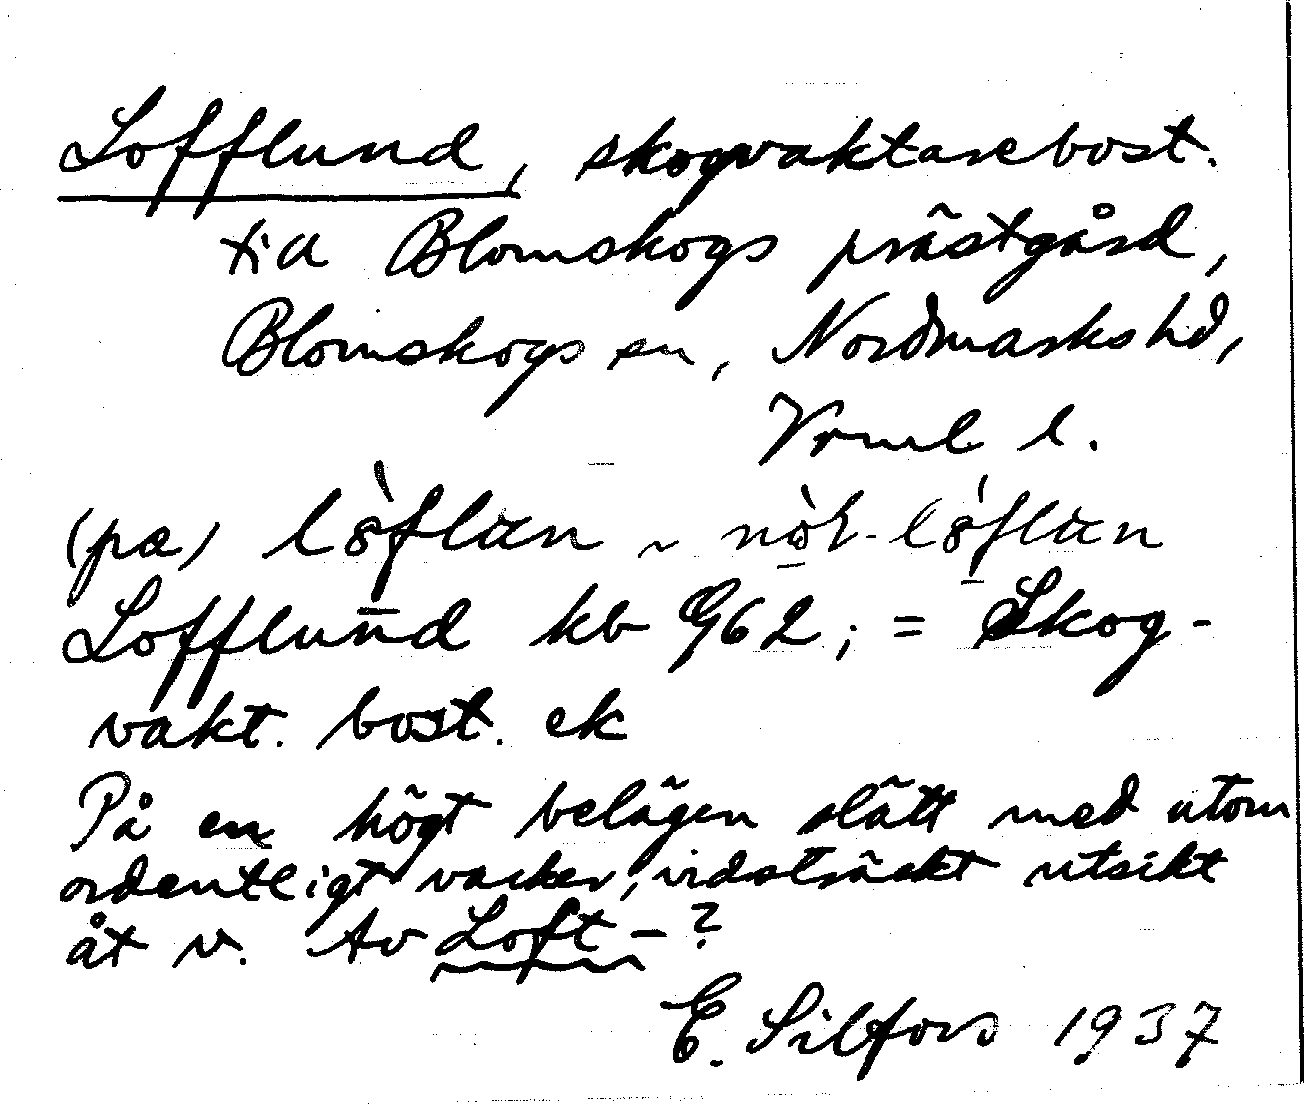 Lofflund, skogvaktarebost.
till Blomskogs prästgård,
Blomskogs sn, Nordmarks hd,
Vrml l.
(pa) lòflan ~ nòl-lóflan
Lofflund kb G62; = Skog-
vakt. bost. ek
På en högt belägen slätt med utom
ordentligt vacker, vidsträckt utsikt
åt v. Av Loft-?
E. Silfors 1937